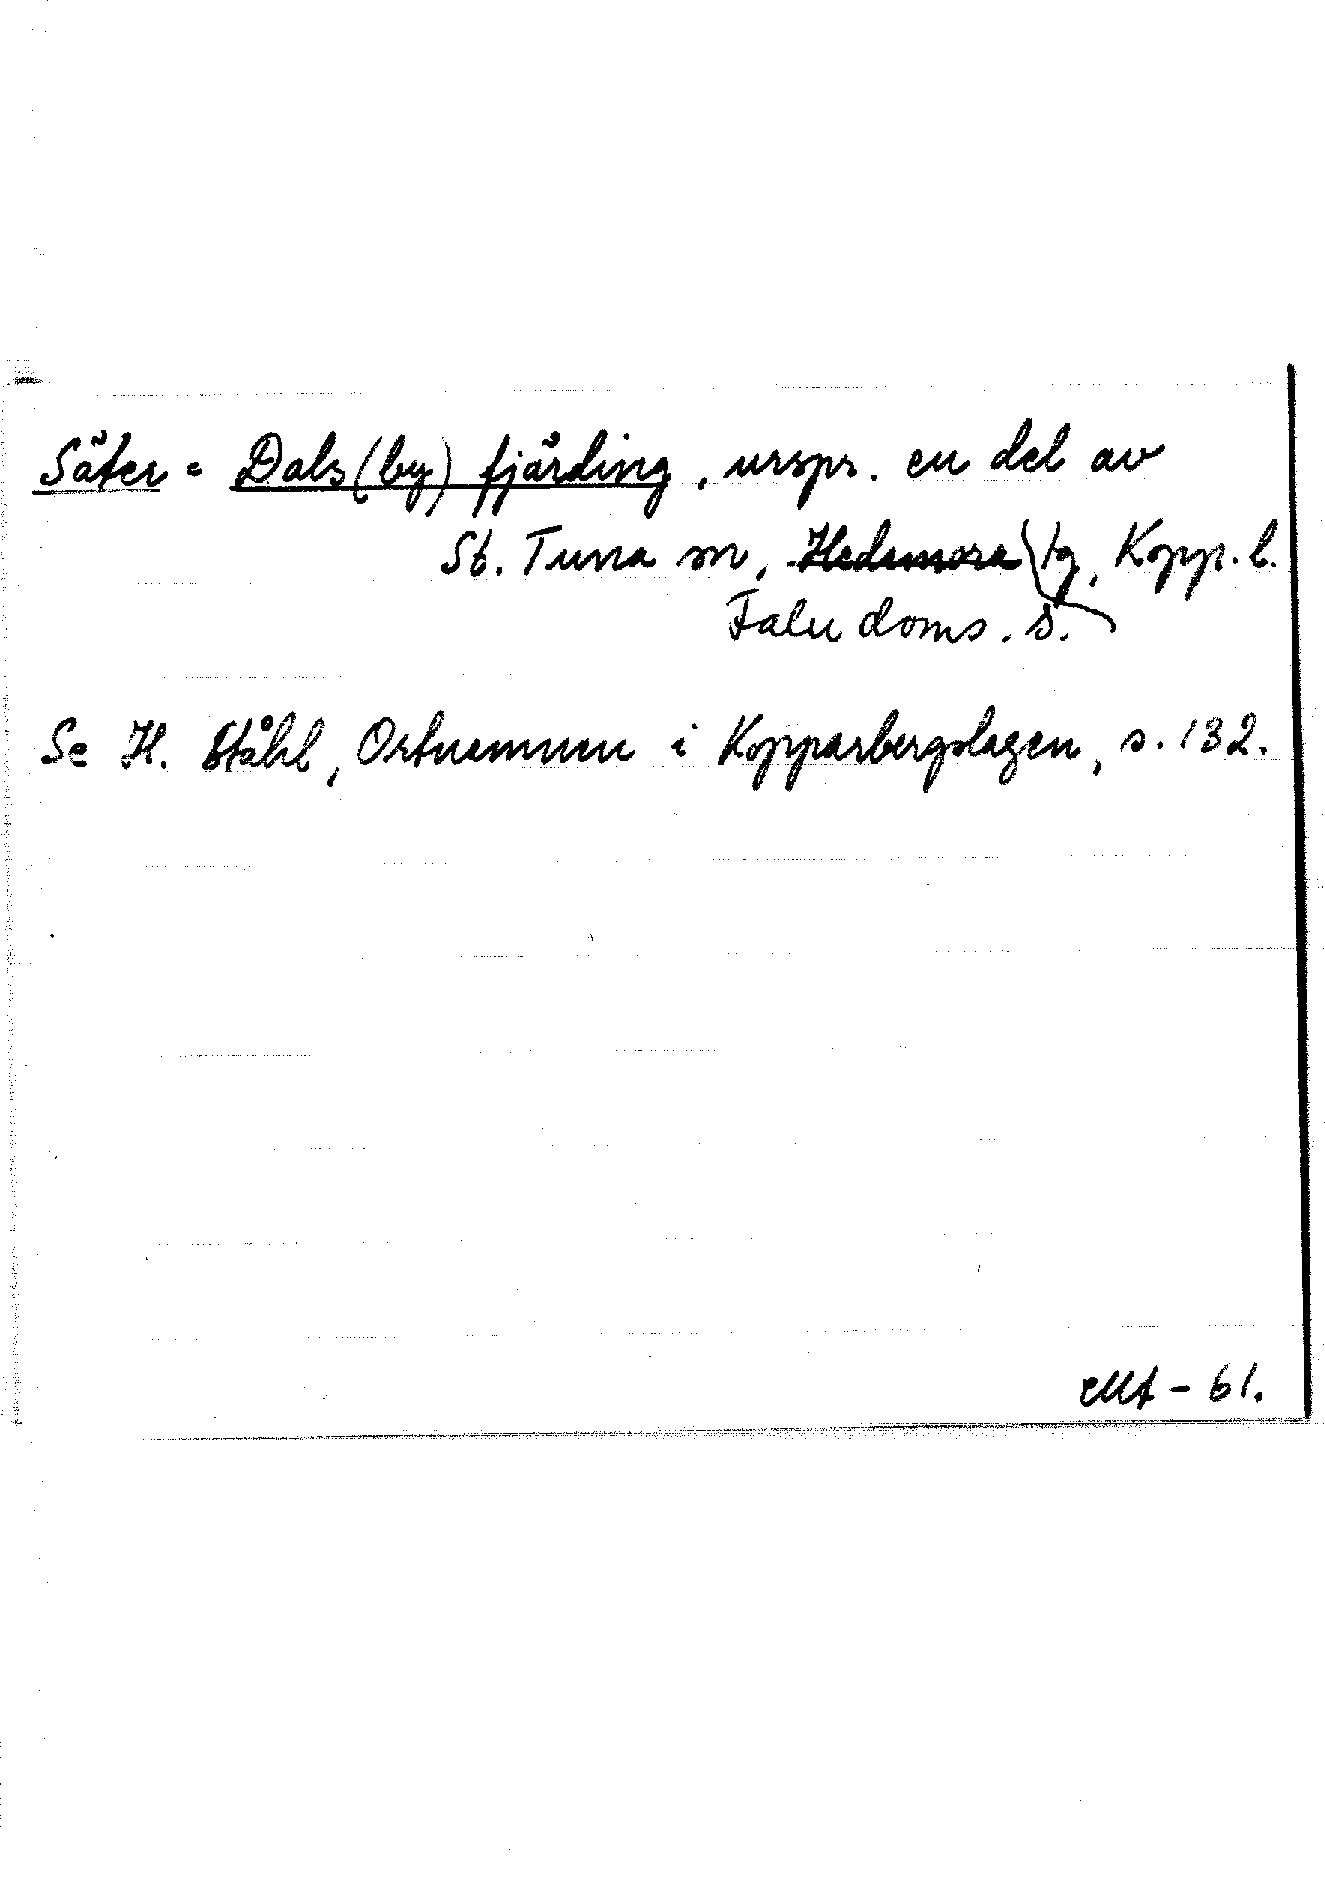 Säter = Dals(by) fjärding, urspr. en del av
St. Tuna sn, Hedemora tg, Kopp. l.
Falu doms. s.
Se H. Ståhl, Ortnamnen i Kopparbergslagen, s. 132.
- 61.